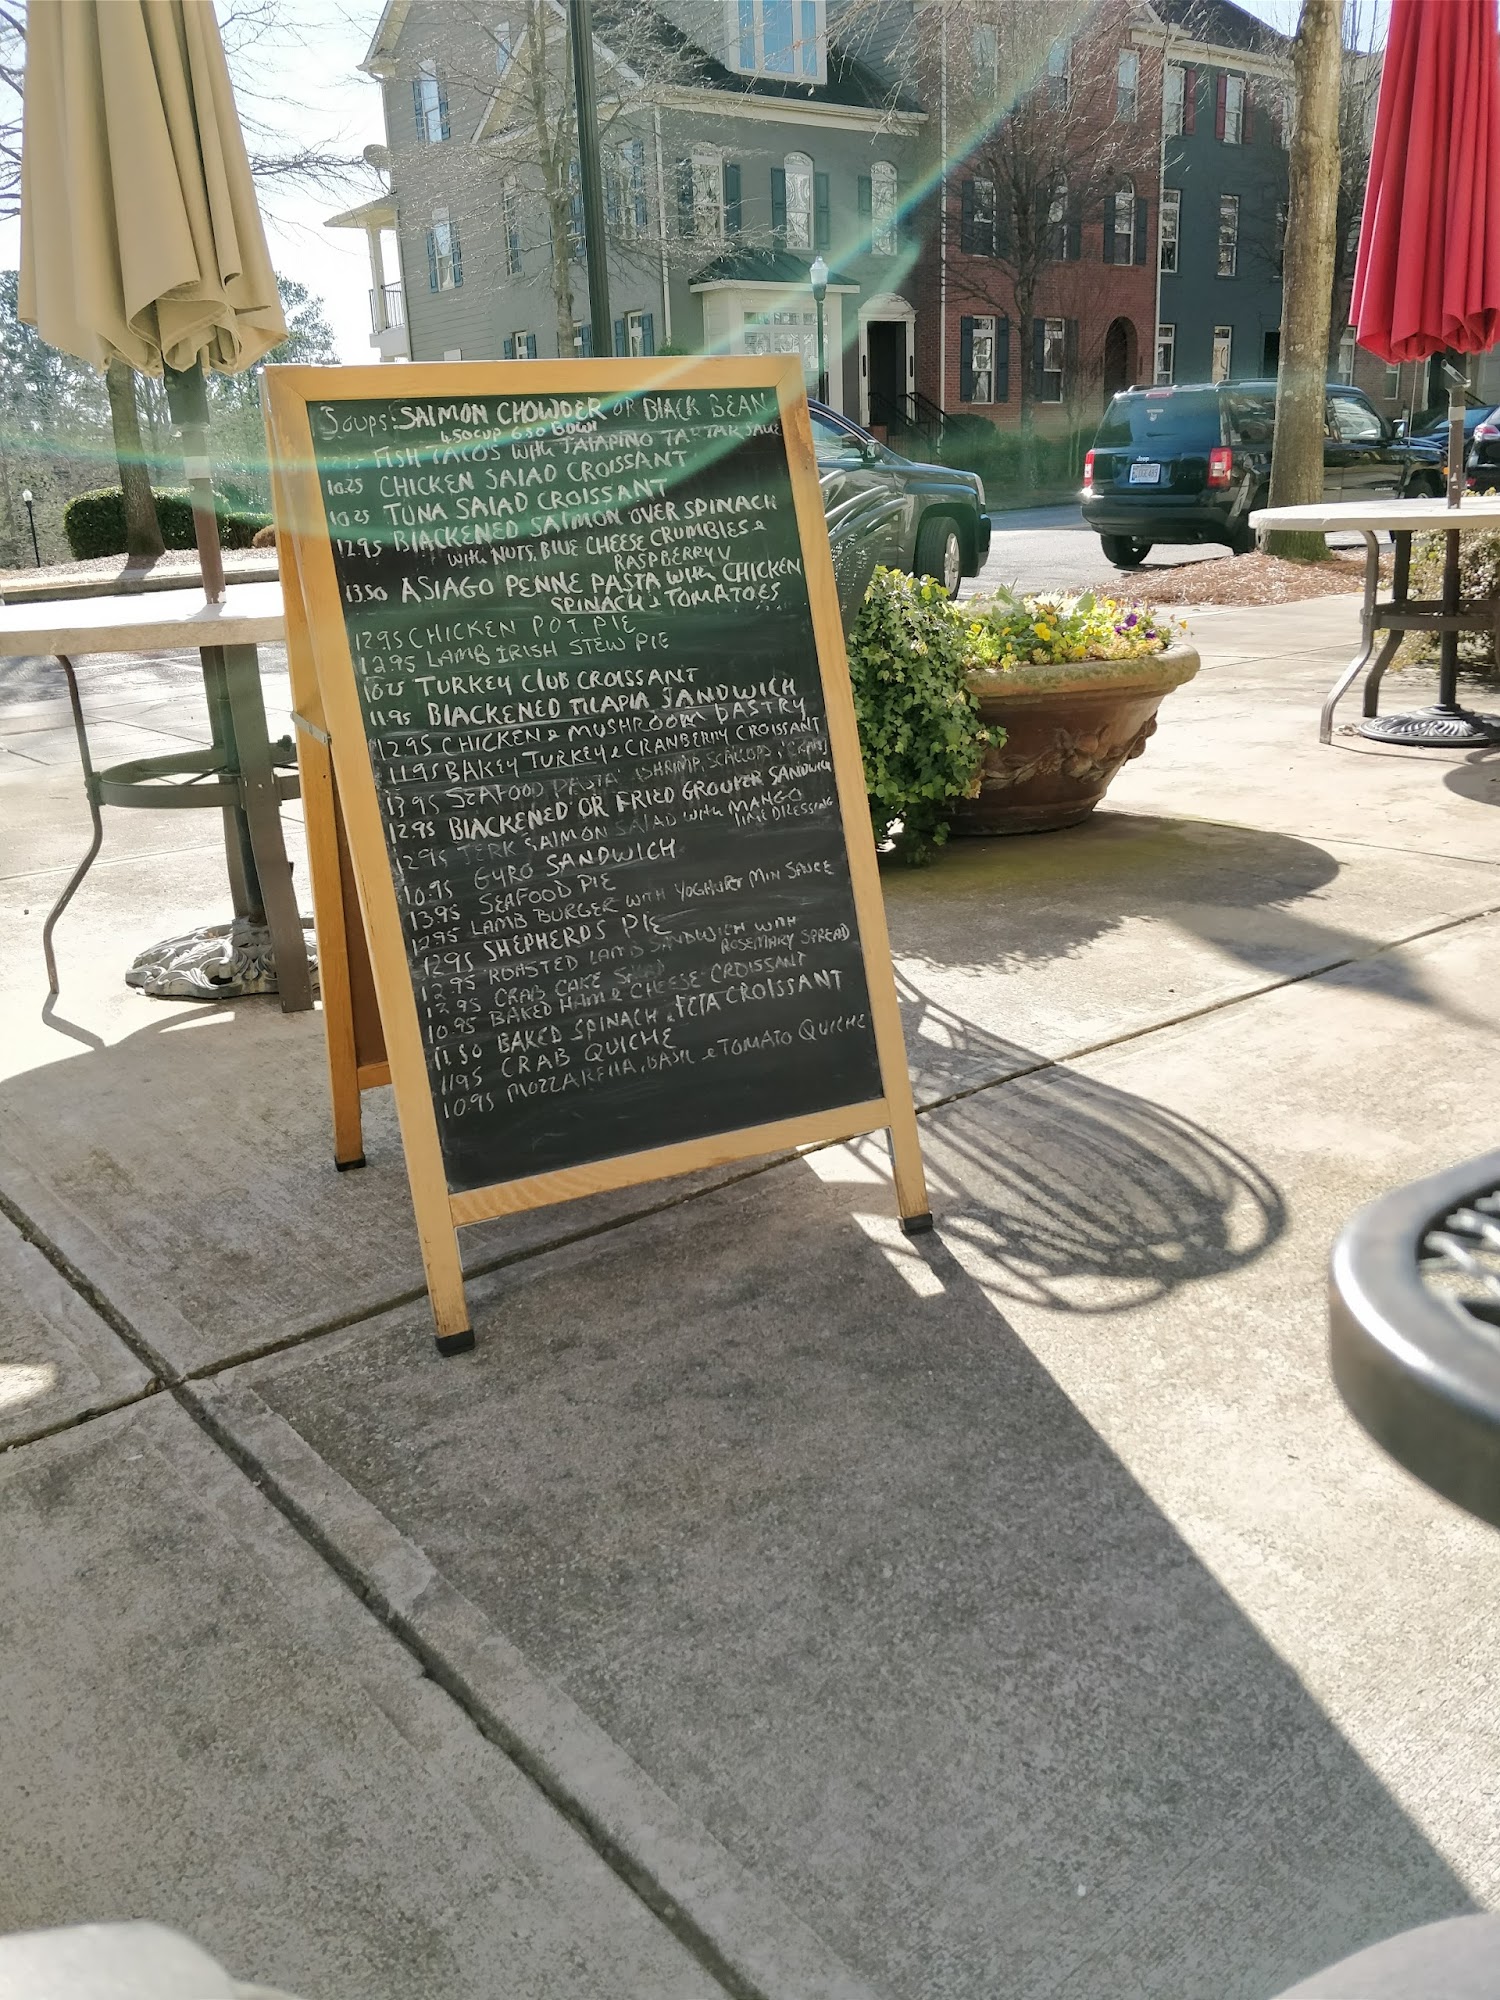 Soups: SALMON CHOWDER OR BLACK BEAN
4.50 CUP 6.50 BOWL
12.95 FISH TACOS with JALAPINO TARTAR SAUCE
10.25 CHICKEN SALAD CROISSANT
10.25 TUNA SALAD CROISSANT
12.95 BLACKENED SALMON OVER SPINACH
with NUTS, BLUE CHEESE CRUMBLES &
RASPBERRY V
13.50 ASIAGO PENNE PASTA with CHICKEN
SPINACH & TOMATOES
12.95 CHICKEN POT PIE
12.95 LAMB IRISH STEW PIE
10.25 TURKEY CLUB CROISSANT
11.95 BLACKENED TILAPIA SANDWICH
12.95 CHICKEN & MUSHROOM PASTRY
11.95 BAKEY TURKEY & CRANBERRY CROISSANT
13.95 SEAFOOD PASTA (SHRIMP, SCALLOPS, CRAB)
12.95 BLACKENED OR FRIED GROUPER SANDWICH
12.95 JERK SALMON SALAD with MANGO
LIME DRESSING
10.95 GYRO SANDWICH
13.95 SEAFOOD PIE
12.95 LAMB BURGER WITH YOGHURT MIN SAUCE
12.95 SHEPHERDS PIE
12.95 ROASTED LAMB SANDWICH WITH
ROSEMARY SPREAD
12.95 CRAB CAKE SALAD
10.95 BAKED HAM & CHEESE CROISSANT
11.50 BAKED SPINACH & FETA CROISSANT
11.95 CRAB QUICHE
10.95 MOZZARELLA, BASIL & TOMATO QUICHE
Jeep